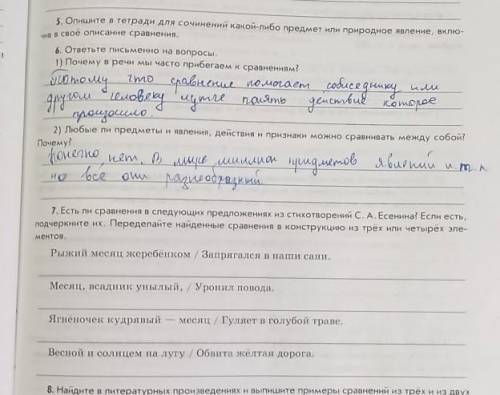 5. Опишите в тетради для сочинений какой-либо предмет или природное явление, вклю-
чив в своё описание сравнения.
6. Ответьте письменно на вопросы.
1) Почему в речи мы часто прибегаем к сравнениям?
Потому что сравнение помогает собеседнику или
другом человеку лутче понять действие которое
произошло
2) Любые ли предметы и явления, действия и признаки можно сравнивать между собой?
Почему?
Конечно нет. В мире миллион придметов явлений и т.п
но все они разнеобразный
7. Есть ли сравнения в следующих предложениях из стихотворений С. А. Есенина? Если есть,
подчеркните их. Переделайте найденные сравнения в конструкцию из трёх или четырёх эле-
ментов.
Рыжий месяц жеребёнком / Запрягался в наши сани.
Месяц, всадник унылый, / Уронил повода.
Ягнёночек кудрявый — месяц / Гуляет в голубой траве.
Весной и солнцем на лугу / Обвита жёлтая дорога.
8. Найдите в литературных произведениях и выпишите примеры сравнений из трёх и из двух